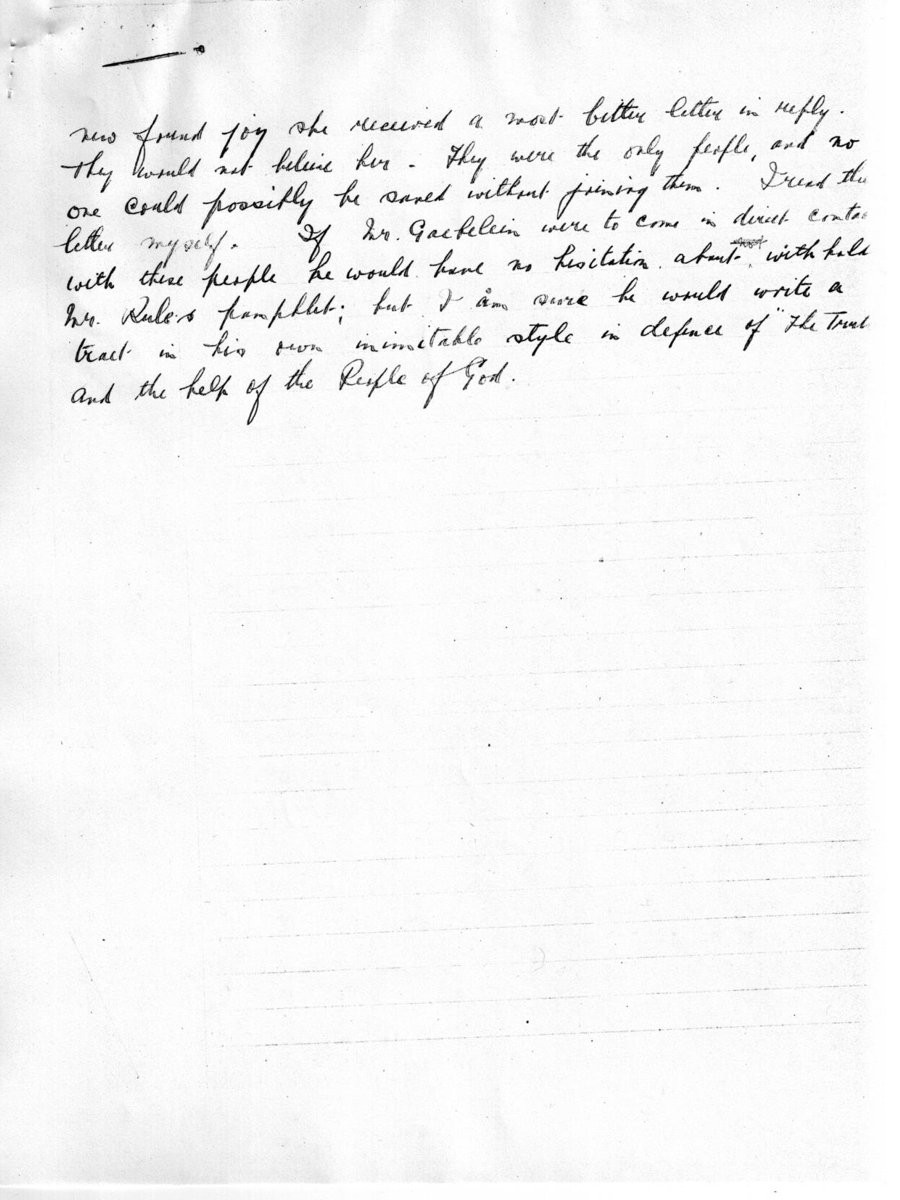 new found joy she received a most bitter letter in reply.
They would not believe her. They were the only people, and no
one could possibly be saved without joining them. I read the
letter myself. If Mr. Gaebelein were to come in direct contac
with these people he would have no hesitation about withhold
Mr. Rule's pamphlet; but I am sure he would write a
tract in his own inimitable style in defence of "The Trut
and the help of the People of God.